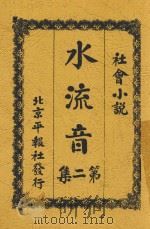 社會小説
水流音
第二集
北京平報社發行